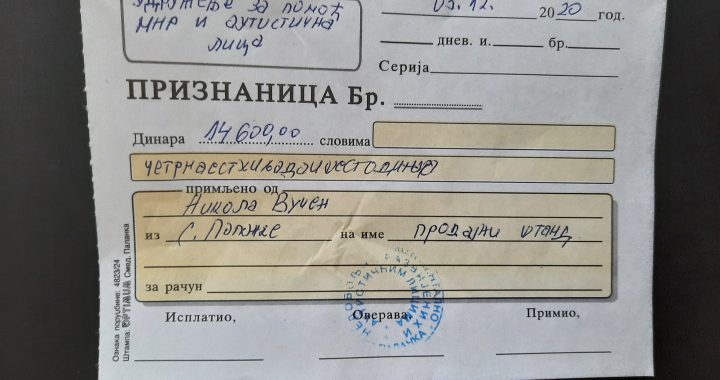 Удружење за помоћ
МНР и аутистична
лица
12. 2020 год.
днев. и. бр.
Серија
ПРИЗНАНИЦА Бр.
Динара 14600,00 словима
четрнаестхиљадаишестодинара
примљено од
Никола Вучен
из С. Паланке на име продајни штанд
за рачун
Исплатио, Оверава, Примио,
ЛИЦИМА
Ознака поруџбине: 4823/24
Штампа: OPTIMUM Смед. Паланка